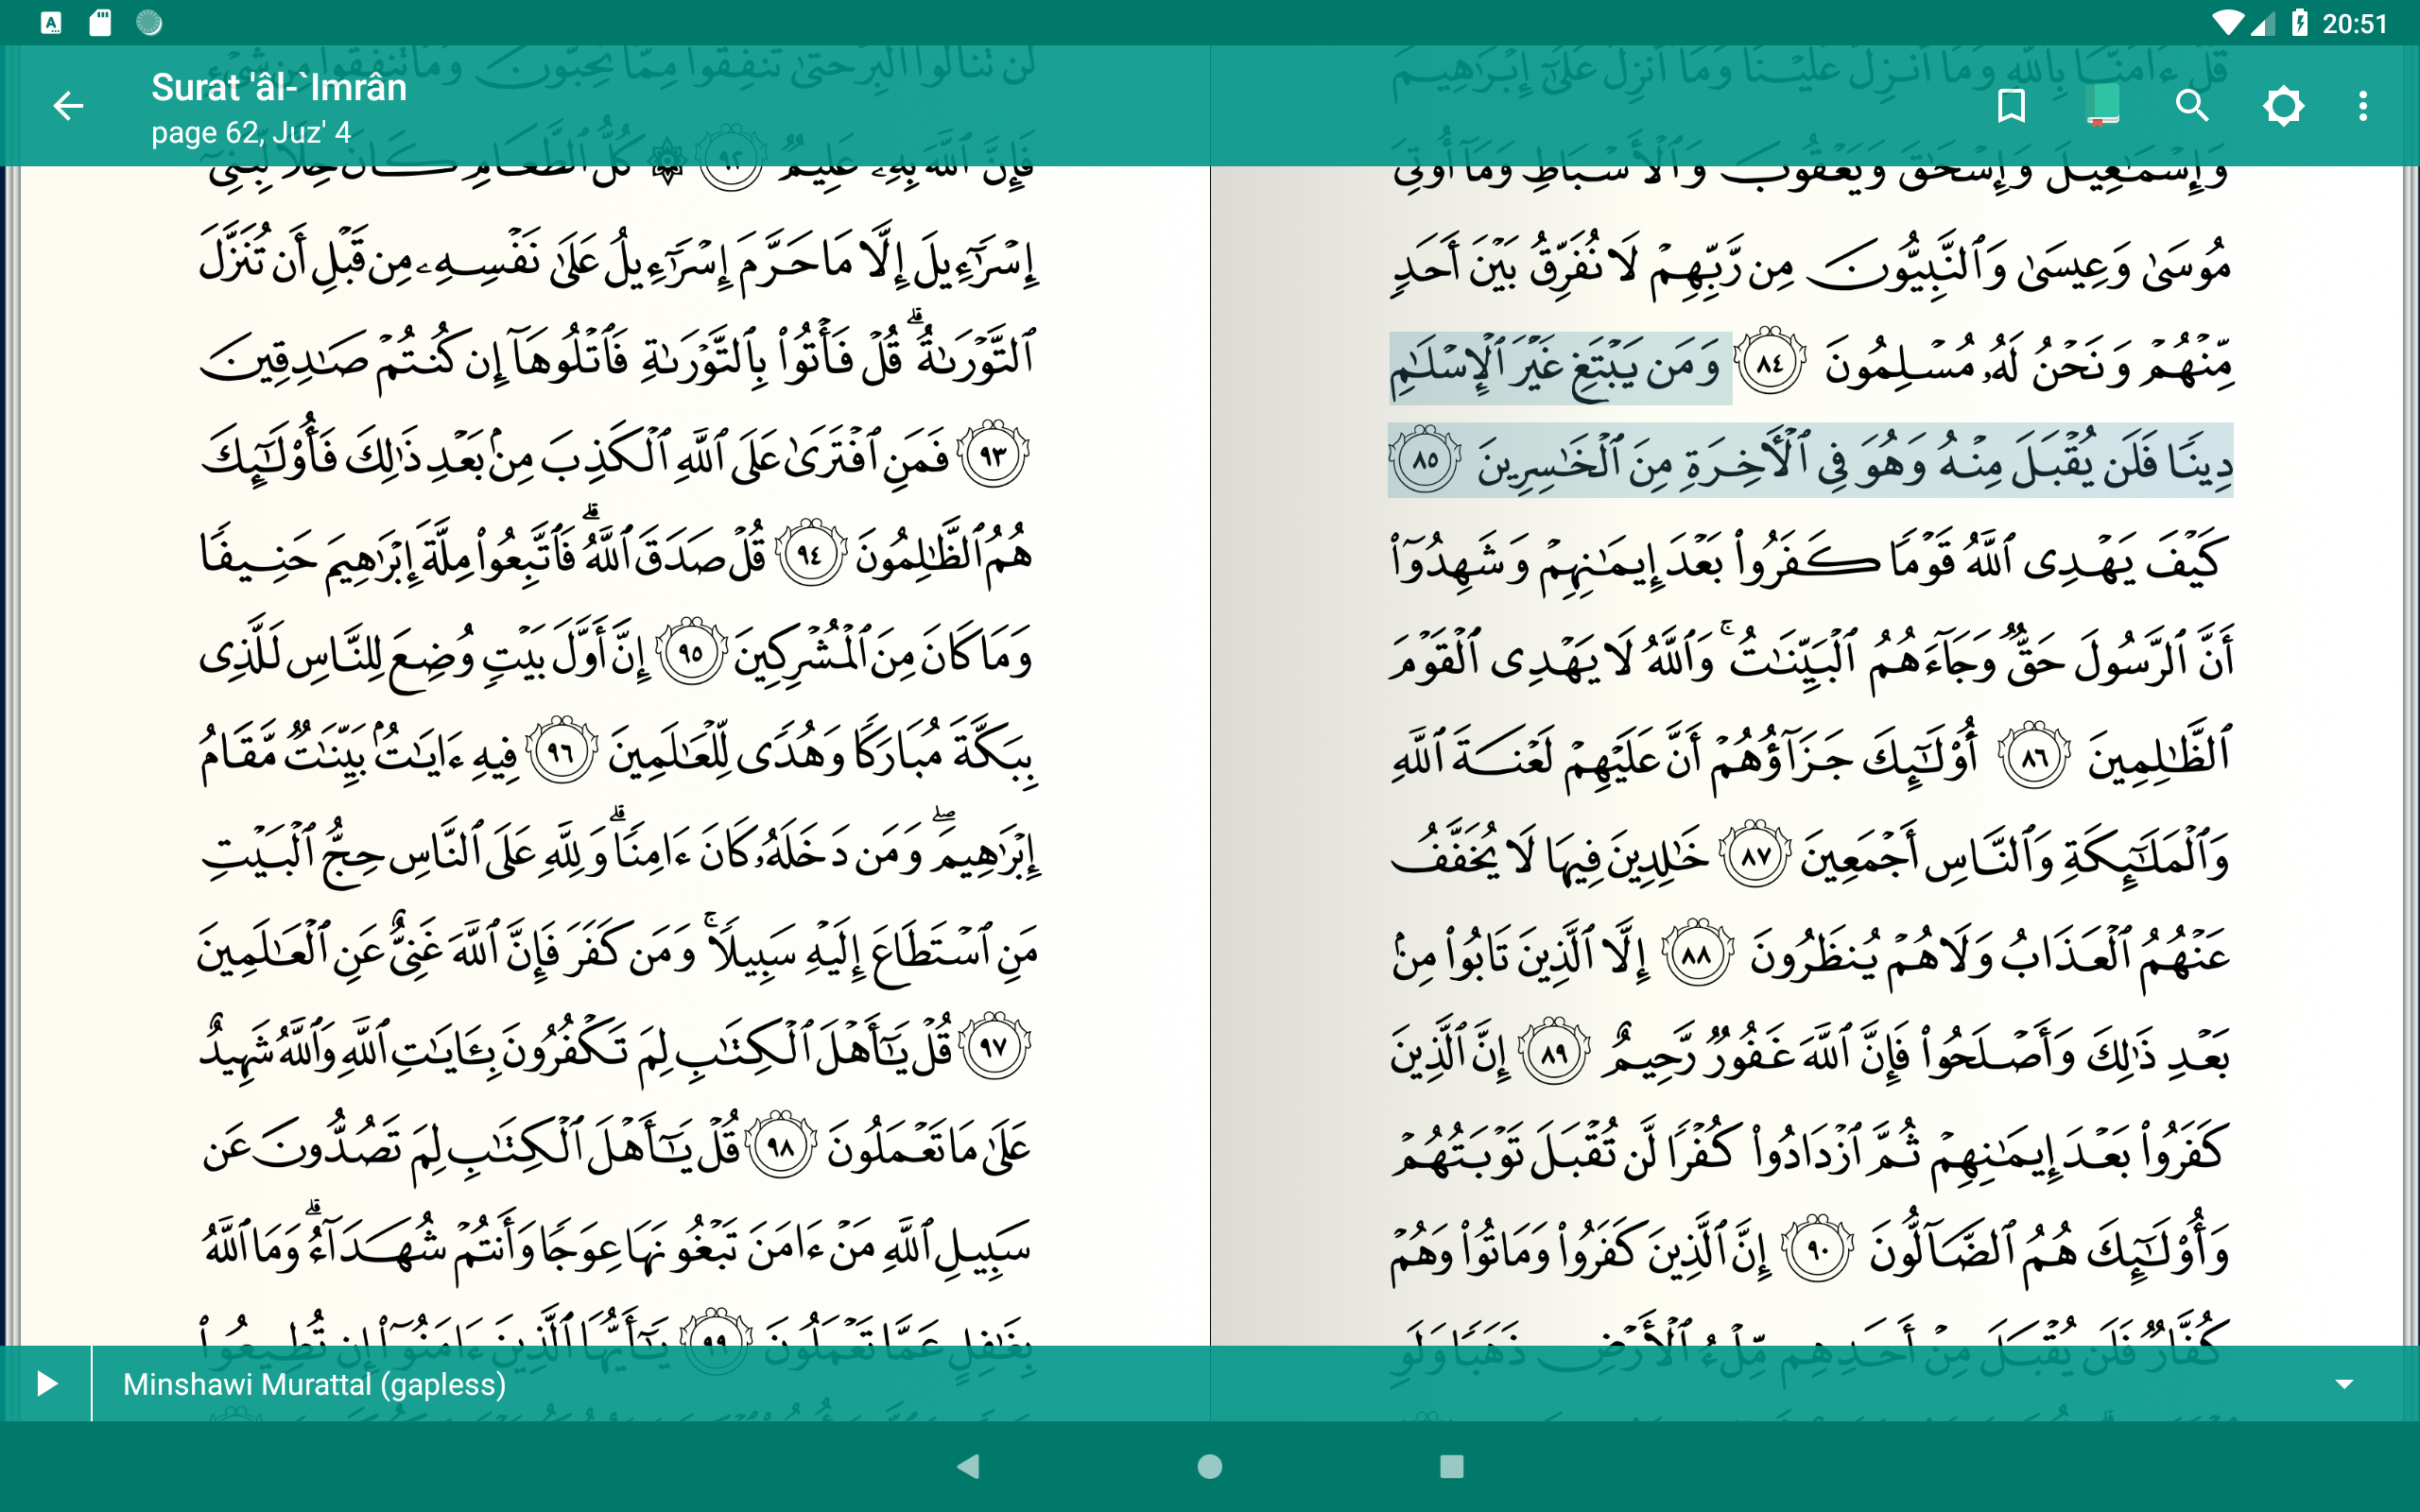 20:51
Surat 'âl-`Imrân
page 62, Juz' 4
قُلْ ءَامَنَّا بِٱللَّهِ وَمَآ أُنزِلَ عَلَيْنَا وَمَآ أُنزِلَ عَلَىٰٓ إِبْرَٰهِيمَ
وَإِسْمَٰعِيلَ وَإِسْحَٰقَ وَيَعْقُوبَ وَٱلْأَسْبَاطِ وَمَآ أُوتِىَ
مُوسَىٰ وَعِيسَىٰ وَٱلنَّبِيُّونَ مِن رَّبِّهِمْ لَا نُفَرِّقُ بَيْنَ أَحَدٍ
مِّنْهُمْ وَنَحْنُ لَهُۥ مُسْلِمُونَ ٨٤ وَمَن يَبْتَغِ غَيْرَ ٱلْإِسْلَٰمِ
دِينًا فَلَن يُقْبَلَ مِنْهُ وَهُوَ فِى ٱلْأَخِرَةِ مِنَ ٱلْخَٰسِرِينَ ٨٥
كَيْفَ يَهْدِى ٱللَّهُ قَوْمًا كَفَرُوا۟ بَعْدَ إِيمَٰنِهِمْ وَشَهِدُوٓا۟
أَنَّ ٱلرَّسُولَ حَقٌّ وَجَآءَهُمُ ٱلْبَيِّنَٰتُ ۚ وَٱللَّهُ لَا يَهْدِى ٱلْقَوْمَ
ٱلظَّٰلِمِينَ ٨٦ أُو۟لَٰٓئِكَ جَزَآؤُهُمْ أَنَّ عَلَيْهِمْ لَعْنَةَ ٱللَّهِ
وَٱلْمَلَٰٓئِكَةِ وَٱلنَّاسِ أَجْمَعِينَ ٨٧ خَٰلِدِينَ فِيهَا لَا يُخَفَّفُ
عَنْهُمُ ٱلْعَذَابُ وَلَا هُمْ يُنظَرُونَ ٨٨ إِلَّا ٱلَّذِينَ تَابُوا۟ مِنۢ
بَعْدِ ذَٰلِكَ وَأَصْلَحُوا۟ فَإِنَّ ٱللَّهَ غَفُورٌ رَّحِيمٌ ٨٩ إِنَّ ٱلَّذِينَ
كَفَرُوا۟ بَعْدَ إِيمَٰنِهِمْ ثُمَّ ٱزْدَادُوا۟ كُفْرًا لَّن تُقْبَلَ تَوْبَتُهُمْ
وَأُو۟لَٰٓئِكَ هُمُ ٱلضَّآلُّونَ ٩٠ إِنَّ ٱلَّذِينَ كَفَرُوا۟ وَمَاتُوا۟ وَهُمْ
كُفَّارٌ فَلَن يُقْبَلَ مِنْ أَحَدِهِم مِّلْءُ ٱلْأَرْضِ ذَهَبًا وَلَوِ
لَن تَنَالُوا۟ ٱلْبِرَّ حَتَّىٰ تُنفِقُوا۟ مِمَّا تُحِبُّونَ وَمَا تُنفِقُوا۟ مِن شَىْءٍ
فَإِنَّ ٱللَّهَ بِهِۦ عَلِيمٌ ٩٢ ۞ كُلُّ ٱلطَّعَامِ كَانَ حِلًّا لِّبَنِىٓ
إِسْرَٰٓءِيلَ إِلَّا مَا حَرَّمَ إِسْرَٰٓءِيلُ عَلَىٰ نَفْسِهِۦ مِن قَبْلِ أَن تُنَزَّلَ
ٱلتَّوْرَىٰةُ ۗ قُلْ فَأْتُوا۟ بِٱلتَّوْرَىٰةِ فَٱتْلُوهَآ إِن كُنتُمْ صَٰدِقِينَ
٩٣ فَمَنِ ٱفْتَرَىٰ عَلَى ٱللَّهِ ٱلْكَذِبَ مِنۢ بَعْدِ ذَٰلِكَ فَأُو۟لَٰٓئِكَ
هُمُ ٱلظَّٰلِمُونَ ٩٤ قُلْ صَدَقَ ٱللَّهُ ۗ فَٱتَّبِعُوا۟ مِلَّةَ إِبْرَٰهِيمَ حَنِيفًا
وَمَا كَانَ مِنَ ٱلْمُشْرِكِينَ ٩٥ إِنَّ أَوَّلَ بَيْتٍ وُضِعَ لِلنَّاسِ لَلَّذِى
بِبَكَّةَ مُبَارَكًا وَهُدًى لِّلْعَٰلَمِينَ ٩٦ فِيهِ ءَايَٰتٌۢ بَيِّنَٰتٌ مَّقَامُ
إِبْرَٰهِيمَ ۖ وَمَن دَخَلَهُۥ كَانَ ءَامِنًا ۗ وَلِلَّهِ عَلَى ٱلنَّاسِ حِجُّ ٱلْبَيْتِ
مَنِ ٱسْتَطَاعَ إِلَيْهِ سَبِيلًا ۚ وَمَن كَفَرَ فَإِنَّ ٱللَّهَ غَنِىٌّ عَنِ ٱلْعَٰلَمِينَ
٩٧ قُلْ يَٰٓأَهْلَ ٱلْكِتَٰبِ لِمَ تَكْفُرُونَ بِـَٔايَٰتِ ٱللَّهِ وَٱللَّهُ شَهِيدٌ
عَلَىٰ مَا تَعْمَلُونَ ٩٨ قُلْ يَٰٓأَهْلَ ٱلْكِتَٰبِ لِمَ تَصُدُّونَ عَن
سَبِيلِ ٱللَّهِ مَنْ ءَامَنَ تَبْغُونَهَا عِوَجًا وَأَنتُمْ شُهَدَآءُ ۗ وَمَا ٱللَّهُ
بِغَٰفِلٍ عَمَّا تَعْمَلُونَ ٩٩ يَٰٓأَيُّهَا ٱلَّذِينَ ءَامَنُوٓا۟ إِن تُطِيعُوا۟
Minshawi Murattal (gapless)